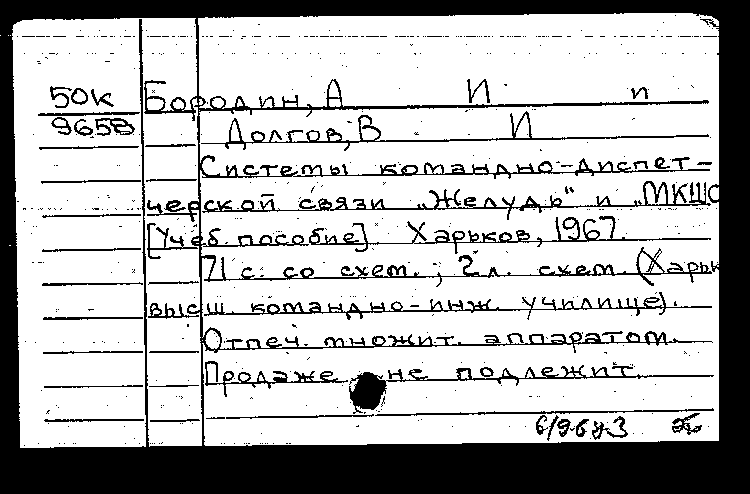 50К Бородин, А И и
965В Долгов, В И
Системы командно-диспет-
черской связи „Желудь“ и „МКШС
[Учеб. пособие]. Харьков, 1967.
71 с. со схем.; 2 л. схем. (Харьк
высш. командно-инж. училище).
Отпеч. множит. аппаратом.
Продаже не подлежит.